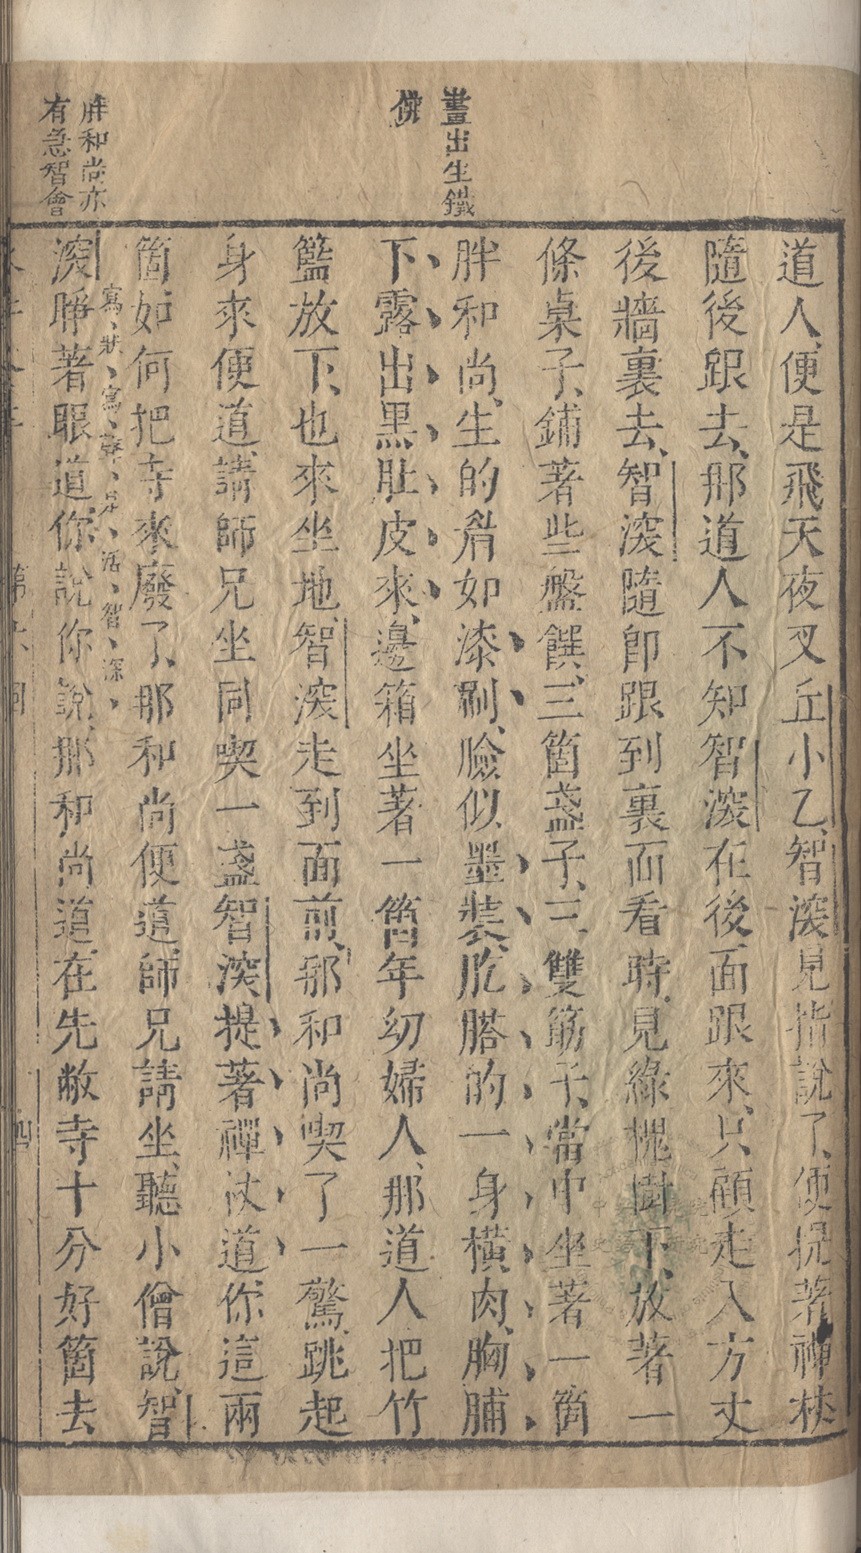 畫出生鐵
佛
道人、便是飛天夜叉丘小乙、智深見指說了、便提著禪杖
隨後跟去、那道人不知智深在後面跟來、只顧走入方丈
後牆裏去、智深隨即跟到裏面看時、見綠槐樹下、放著一
條桌子、鋪著些盤饌、三箇盞子、三雙筯子、當中坐著一箇
胖和尚、生的眉如漆刷、臉似墨裝、肐𦞂的一身橫肉、胸脯
下露出黑肚皮來、邊箱坐著一箇年幼婦人、那道人把竹
籃放下、也來坐地、智深走到面前、那和尚喫了一驚、跳起
身來便道、請師兄坐同喫一盞、智深提著禪杖道、你這兩
箇如何把寺來廢了、那和尚便道、師兄請坐、聽小僧說、智
胖和尚亦
有急智會
寫狀寫聲是活智深
深睜著眼道、你說你說、那和尚道、在先敝寺十分好箇去
第六回 四